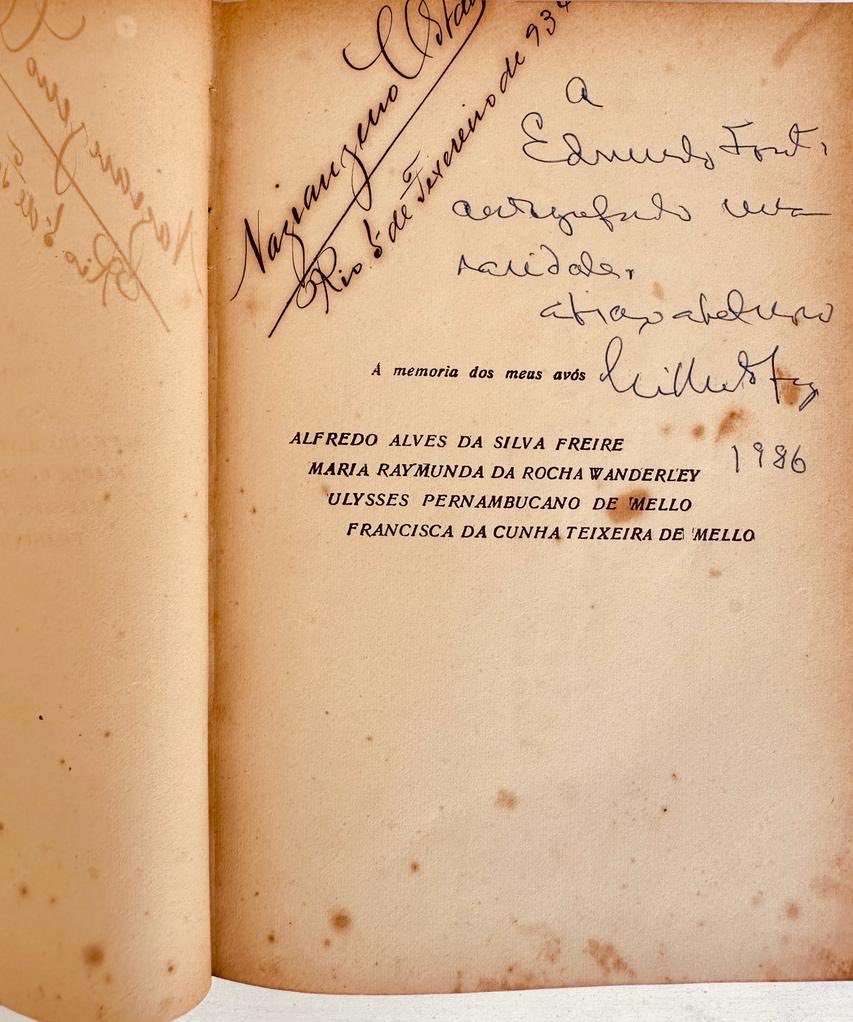 Nazianzeno
Rio 5 de Fevereiro de 934
A
Edmundo Font,
autografado esta
raridade,
abraço
1986
Á memoria dos meus avós
ALFREDO ALVES DA SILVA FREIRE
MARIA RAYMUNDA DA ROCHA WANDERLEY
ULYSSES PERNAMBUCANO DE MELLO
FRANCISCA DA CUNHA TEIXEIRA DE MELLO